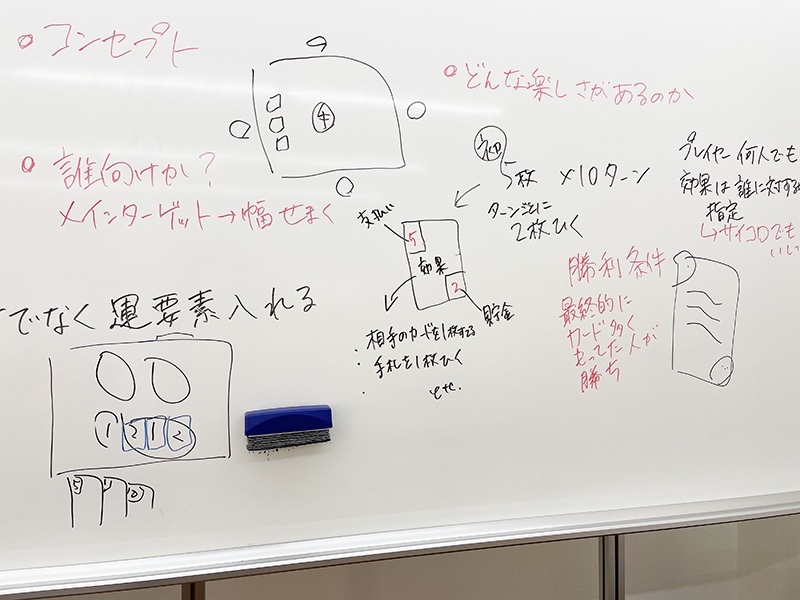 コンセプト
誰向けか?
メインターゲット→幅せまく
でなく運要素入れる
1 2 1 2
5 1 2
どんな楽しさがあるのか
5枚 ×10ターン
ターン毎に
2枚ひく
支払い
5
効果
2
貯金
・相手のカードを1枚
・手札を1枚ひく
・ etc.
プレイヤー何人でも
効果は誰に対する
指定
↳サイコロでも
勝利条件
最終的に
カード多く
もってた人が
勝ち